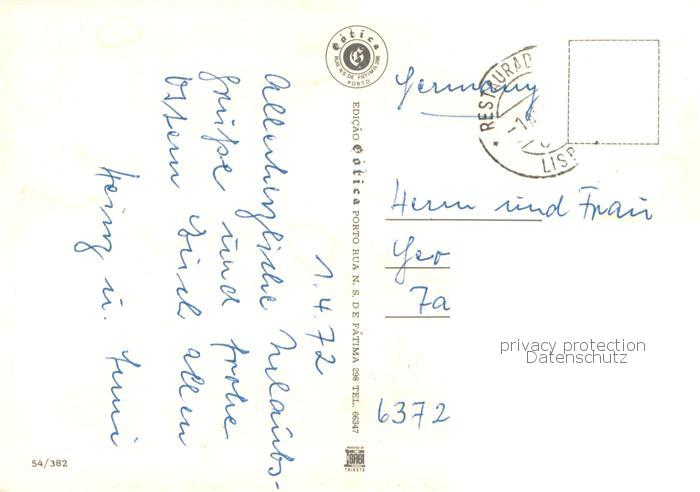 1.4.72
Allerherzlichste Urlaubs-
grüße und frohe
Ostern Euch allen
Heinz u. Anni
Gótica
RUA N. S. DE FÁTIMA, 298
PORTO
EDIÇÃO Gótica PORTO RUA N. S. DE FÁTIMA 298 TEL. 66347
PRINTED BY
TRIESTE
54/382
RESTAURAD
LISB
Germany
Herrn und Frau
Geo
7a
6372
privacy protection
Datenschutz